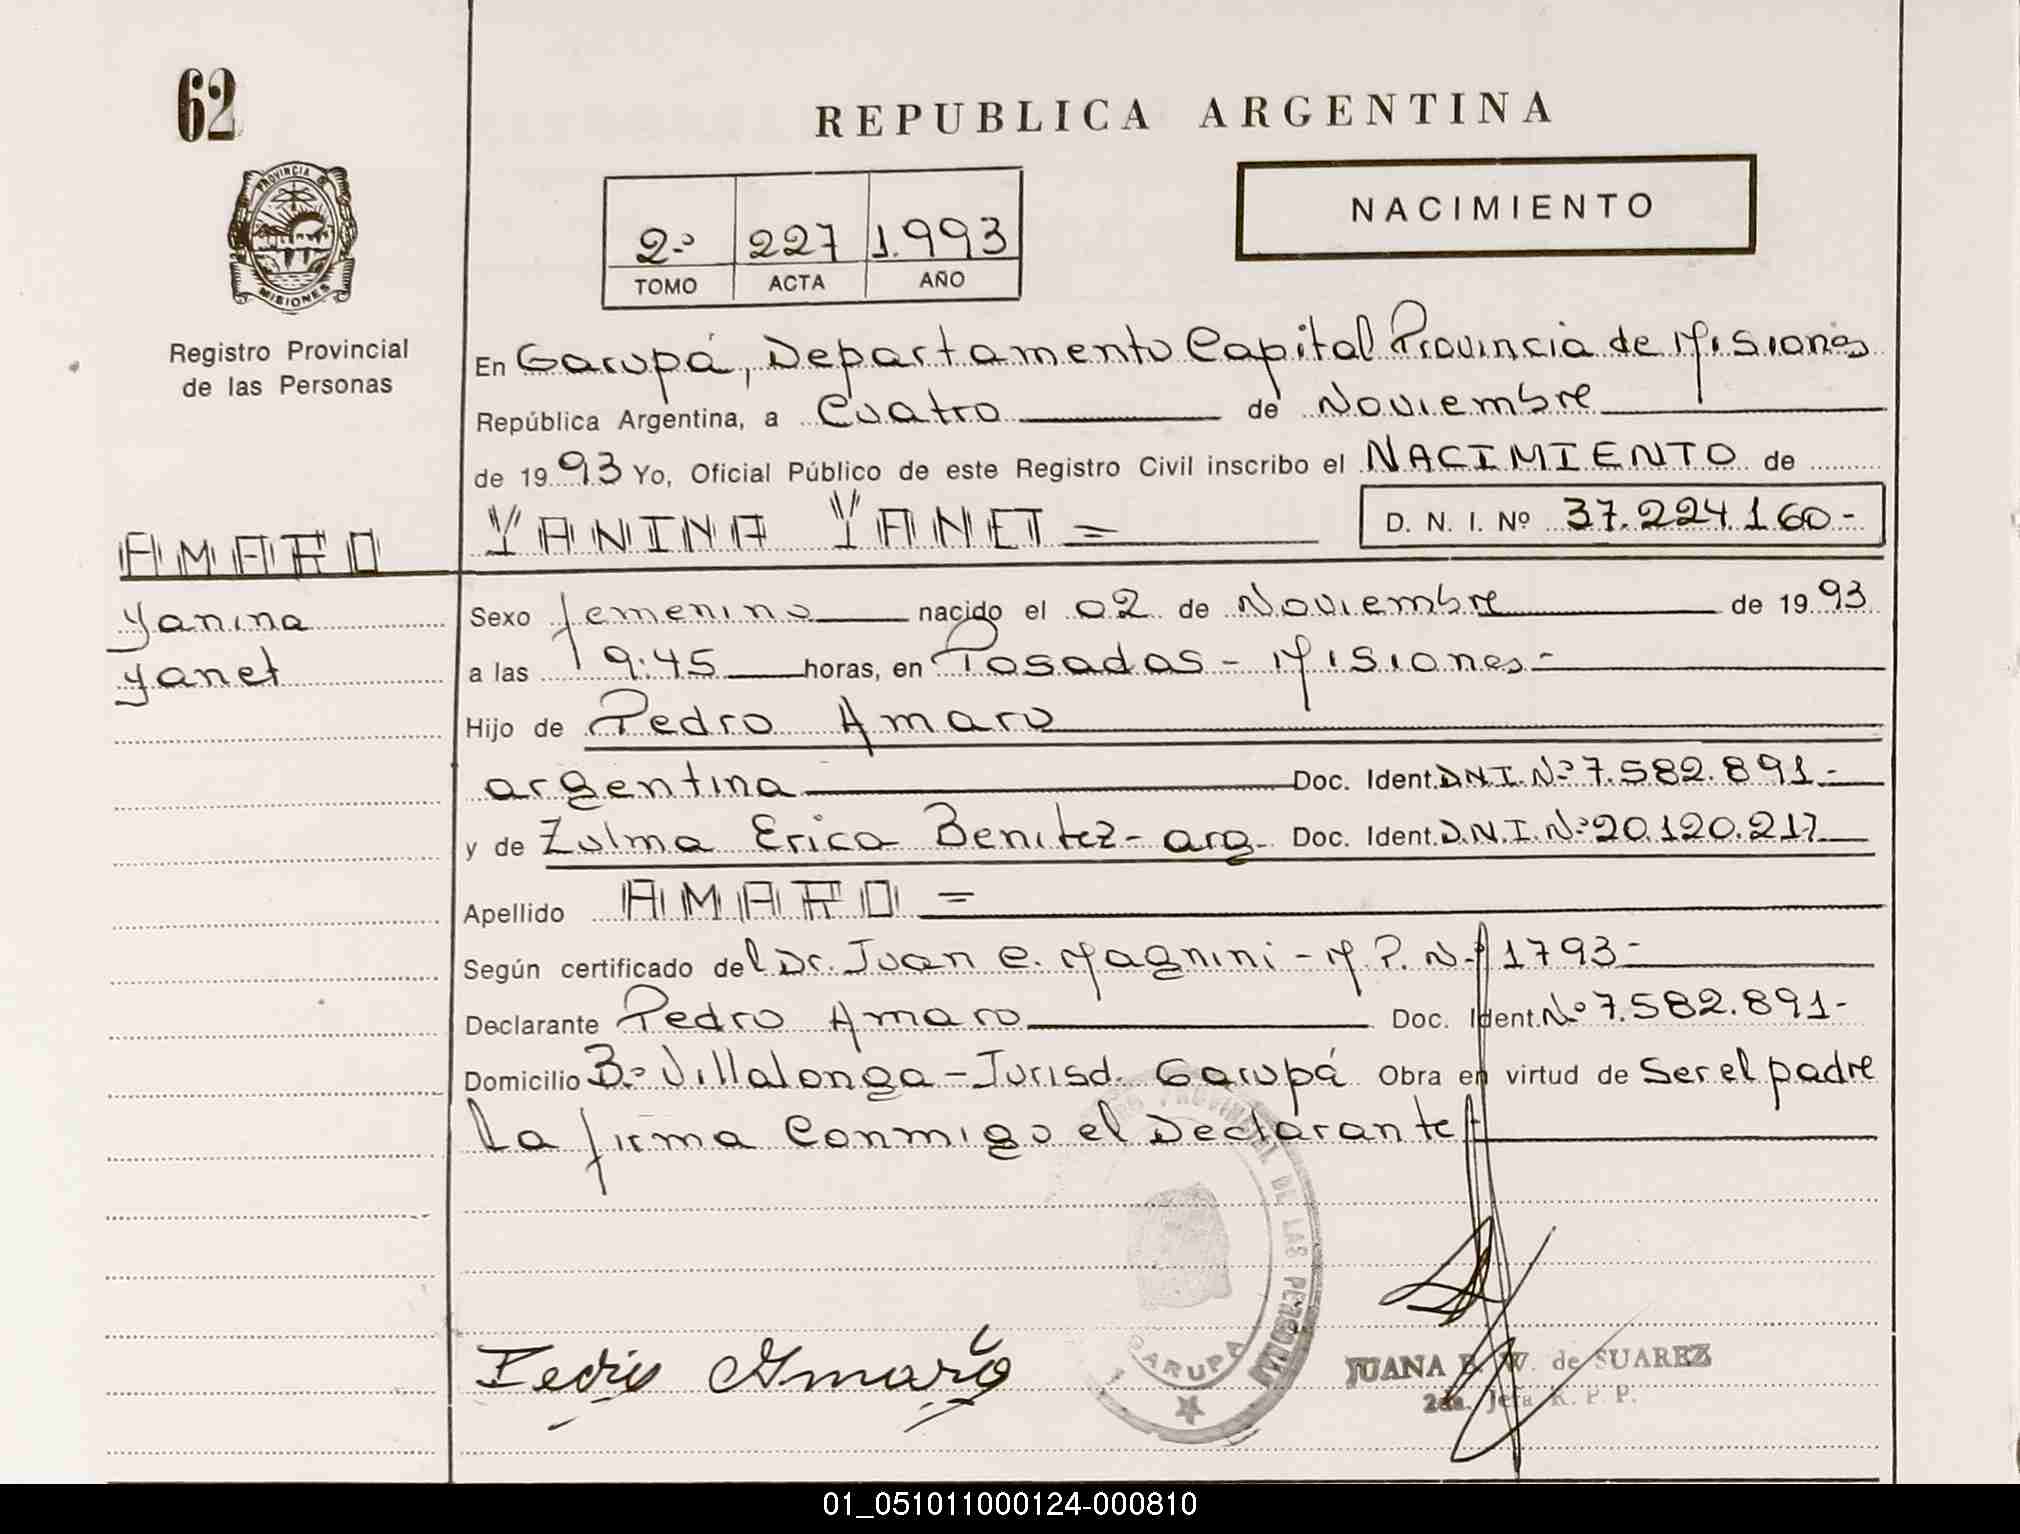 62
REPUBLICA ARGENTINA
PROVINCIA DE
MISIONES
Registro Provincial
de las Personas
2.º 227 1.993
TOMO ACTA AÑO
NACIMIENTO
En Garupá, Departamento Capital Provincia de Misiones
República Argentina, a Cuatro de Noviembre
de 1993 Yo, Oficial Público de este Registro Civil inscribo el NACIMIENTO de
YANINA YANET = D. N. I. Nº 37.224.160-
AMARO
Yanina
Yanet
Sexo femenino nacido el 02 de Noviembre de 1993
a las 19:45 horas, en Posadas - Misiones-
Hijo de Pedro Amaro
argentina Doc. Ident. D.N.I. Nº 7.582.891-
y de Zulma Erica Benitez- arg- Doc. Ident. D.N.I. Nº 20.120.217
Apellido AMARO =
Según certificado del Dr. Juan C. Magnini - M.P. Nº 1793-
Declarante Pedro Amaro Doc. Ident. Nº 7.582.891-
Domicilio Bº Villalonga - Jurisd. Garupá Obra en virtud de Ser el padre
La firma Conmigo el Declarante
PROVINCIAL DE LAS PERSONAS
GARUPA
Pedro Amaro
JUANA E. W. de SUAREZ
2da. Jefa R. P. P.
01_051011000124-000810